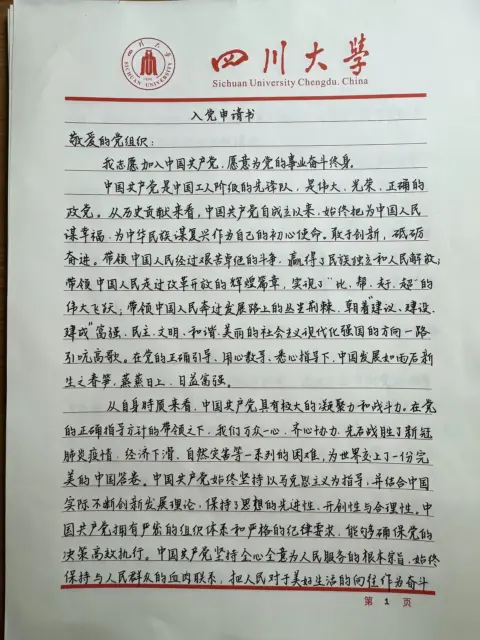 四川大学
SICHUAN UNIVERSITY
1896
四川大学
Sichuan University Chengdu. China
入党申请书
敬爱的党组织：
我志愿加入中国共产党，愿意为党的事业奋斗终身。
中国共产党是中国工人阶级的先锋队，是伟大、光荣、正确的
政党。从历史贡献来看，中国共产党自成立以来，始终把为中国人民
谋幸福、为中华民族谋复兴作为自己的初心使命。敢于创新，砥砺
奋进。带领中国人民经过艰苦卓绝的斗争，赢得了民族独立和人民解放；
带领中国人民走过改革开放的辉煌篇章，实现了“比、帮、赶、超”的
伟大飞跃；带领中国人民奔过发展路上的丛生荆棘，朝着“建议、建设、
建成”富强、民主、文明、和谐、美丽的社会主义现代化强国的方向一路
引吭高歌。在党的正确引导、用心教导、悉心指导下，中国发展如雨后新
生之春笋，蒸蒸日上、日益富强。
从自身特质来看，中国共产党具有极大的凝聚力和战斗力。在党
的正确指导方针的带领之下，我们万众一心、齐心协力，先后战胜了新冠
肺炎疫情、经济下滑、自然灾害等一系列的困难，为世界交上了一份完
美的中国答卷。中国共产党始终坚持以马克思主义为指导，并结合中国
实际不断创新发展理论，保持了思想的先进性、开创性与合理性。中
国共产党拥有严密的组织体系和严格的纪律要求，能够确保党的
决策高效执行。中国共产党坚持全心全意为人民服务的根本宗旨，始终
保持与人民群众的血肉联系，把人民对于美好生活的向往作为奋斗
第 1 页